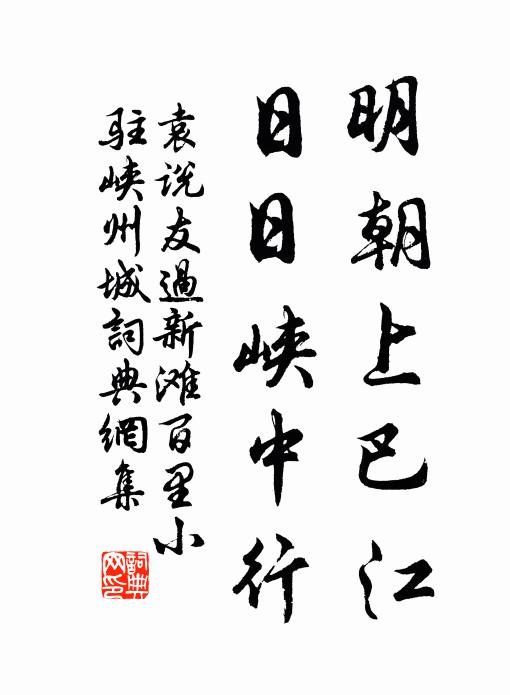 明朝上巴江
日日峡中行
袁说友過新滩百里小
駐峡州城詞典網集
詞典
网印